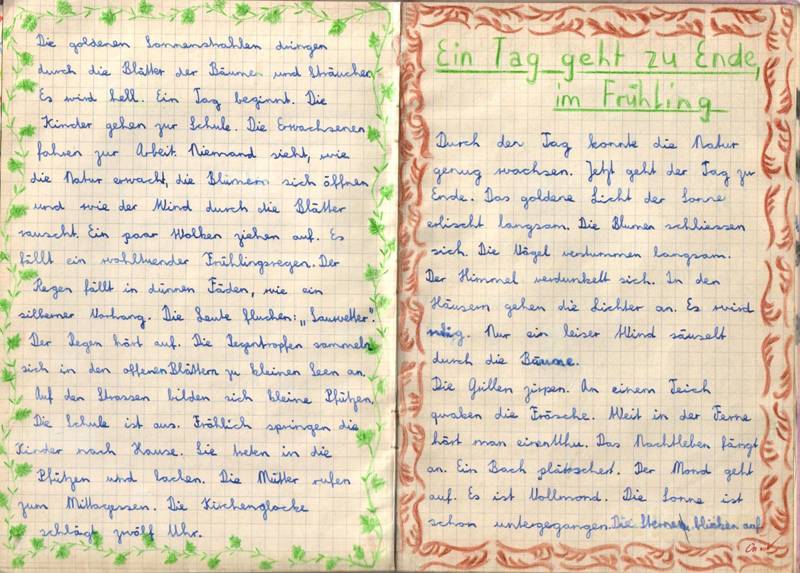 Die goldenen Sonnenstrahlen dringen
durch die Blätter der Bäume und Sträucher.
Es wird hell. Ein Tag beginnt. Die
Kinder gehen zur Schule. Die Erwachsenen
fahren zur Arbeit. Niemand sieht, wie
die Natur erwacht, die Blumen sich öffnen
und wie der Wind durch die Blätter
rauscht. Ein paar Wolken ziehen auf. Es
fällt ein wohltuender Frühlingsregen. Der
Regen fällt in dünnen Fäden, wie ein
silberner Vorhang. Die Leute fluchen: „Sauwetter".
Der Regen hört auf. Die Regentropfen sammeln
sich in den offenen Blättern zu kleinen Seen an.
Auf den Strassen bilden sich kleine Pfützen.
Die Schule ist aus. Fröhlich springen die
Kinder nach Hause. Sie treten in die
Pfützen und lachen. Die Mütter rufen
zum Mittagessen. Die Kirchenglocke
schlägt zwölf Uhr.
Ein Tag geht zu Ende,
im Frühling
Durch den Tag konnte die Natur
genug wachsen. Jetzt geht der Tag zu
Ende. Das goldene Licht der Sonne
erlischt langsam. Die Blumen schliessen
sich. Die Vögel verstummen langsam.
Der Himmel verdunkelt sich. In den
Häusern gehen die Lichter an. Es wird
ruhig. Nur ein leiser Wind säuselt
durch die Bäume.
Die Grillen zirpen. An einem Teich
quaken die Frösche. Weit in der Ferne
hört man einen Uhu. Das Nachtleben fängt
an. Ein Bach plätschert. Der Mond geht
auf. Es ist Vollmond. Die Sonne ist
schon untergegangen. Die Sterne blicken auf